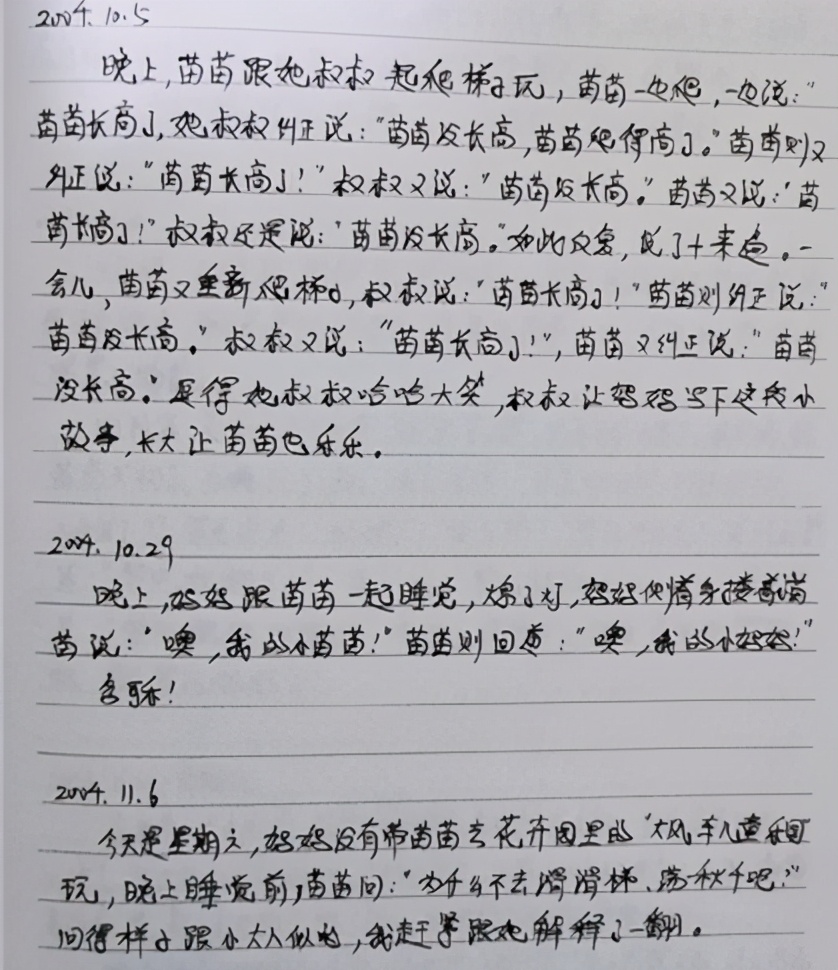 2004.10.5
晚上,苗苗跟她叔叔一起爬梯子玩,苗苗一边爬,一边说:"
苗苗长高了,她叔叔纠正说:"苗苗没长高,苗苗爬得高了。"苗苗则又
纠正说:"苗苗长高了!"叔叔又说:"苗苗没长高。"苗苗又说:"苗
苗长高了!"叔叔还是说:"苗苗没长高。"如此反复,说了十来遍。一
会儿,苗苗又重新爬梯子,叔叔说:"苗苗长高了!"苗苗则纠正说:"
苗苗没长高。"叔叔又说:"苗苗长高了!",苗苗又纠正说:"苗苗
没长高。"逗得她叔叔哈哈大笑,叔叔让妈妈写下这段小
故事,长大让苗苗也乐乐。
2004.10.29
晚上,妈妈跟苗苗一起睡觉,熄了灯,妈妈侧着身搂着苗
苗说:"噢,我的小苗苗!"苗苗则回道:"噢,我的小妈妈!"
多乖!
2004.11.6
今天是星期六,妈妈没有带苗苗去花卉园里的"大风车儿童乐园"
玩,晚上睡觉前,苗苗问:"为什么不去滑滑梯、荡秋千呢?"
问得样子跟小大人似的,我赶紧跟她解释了一翻。